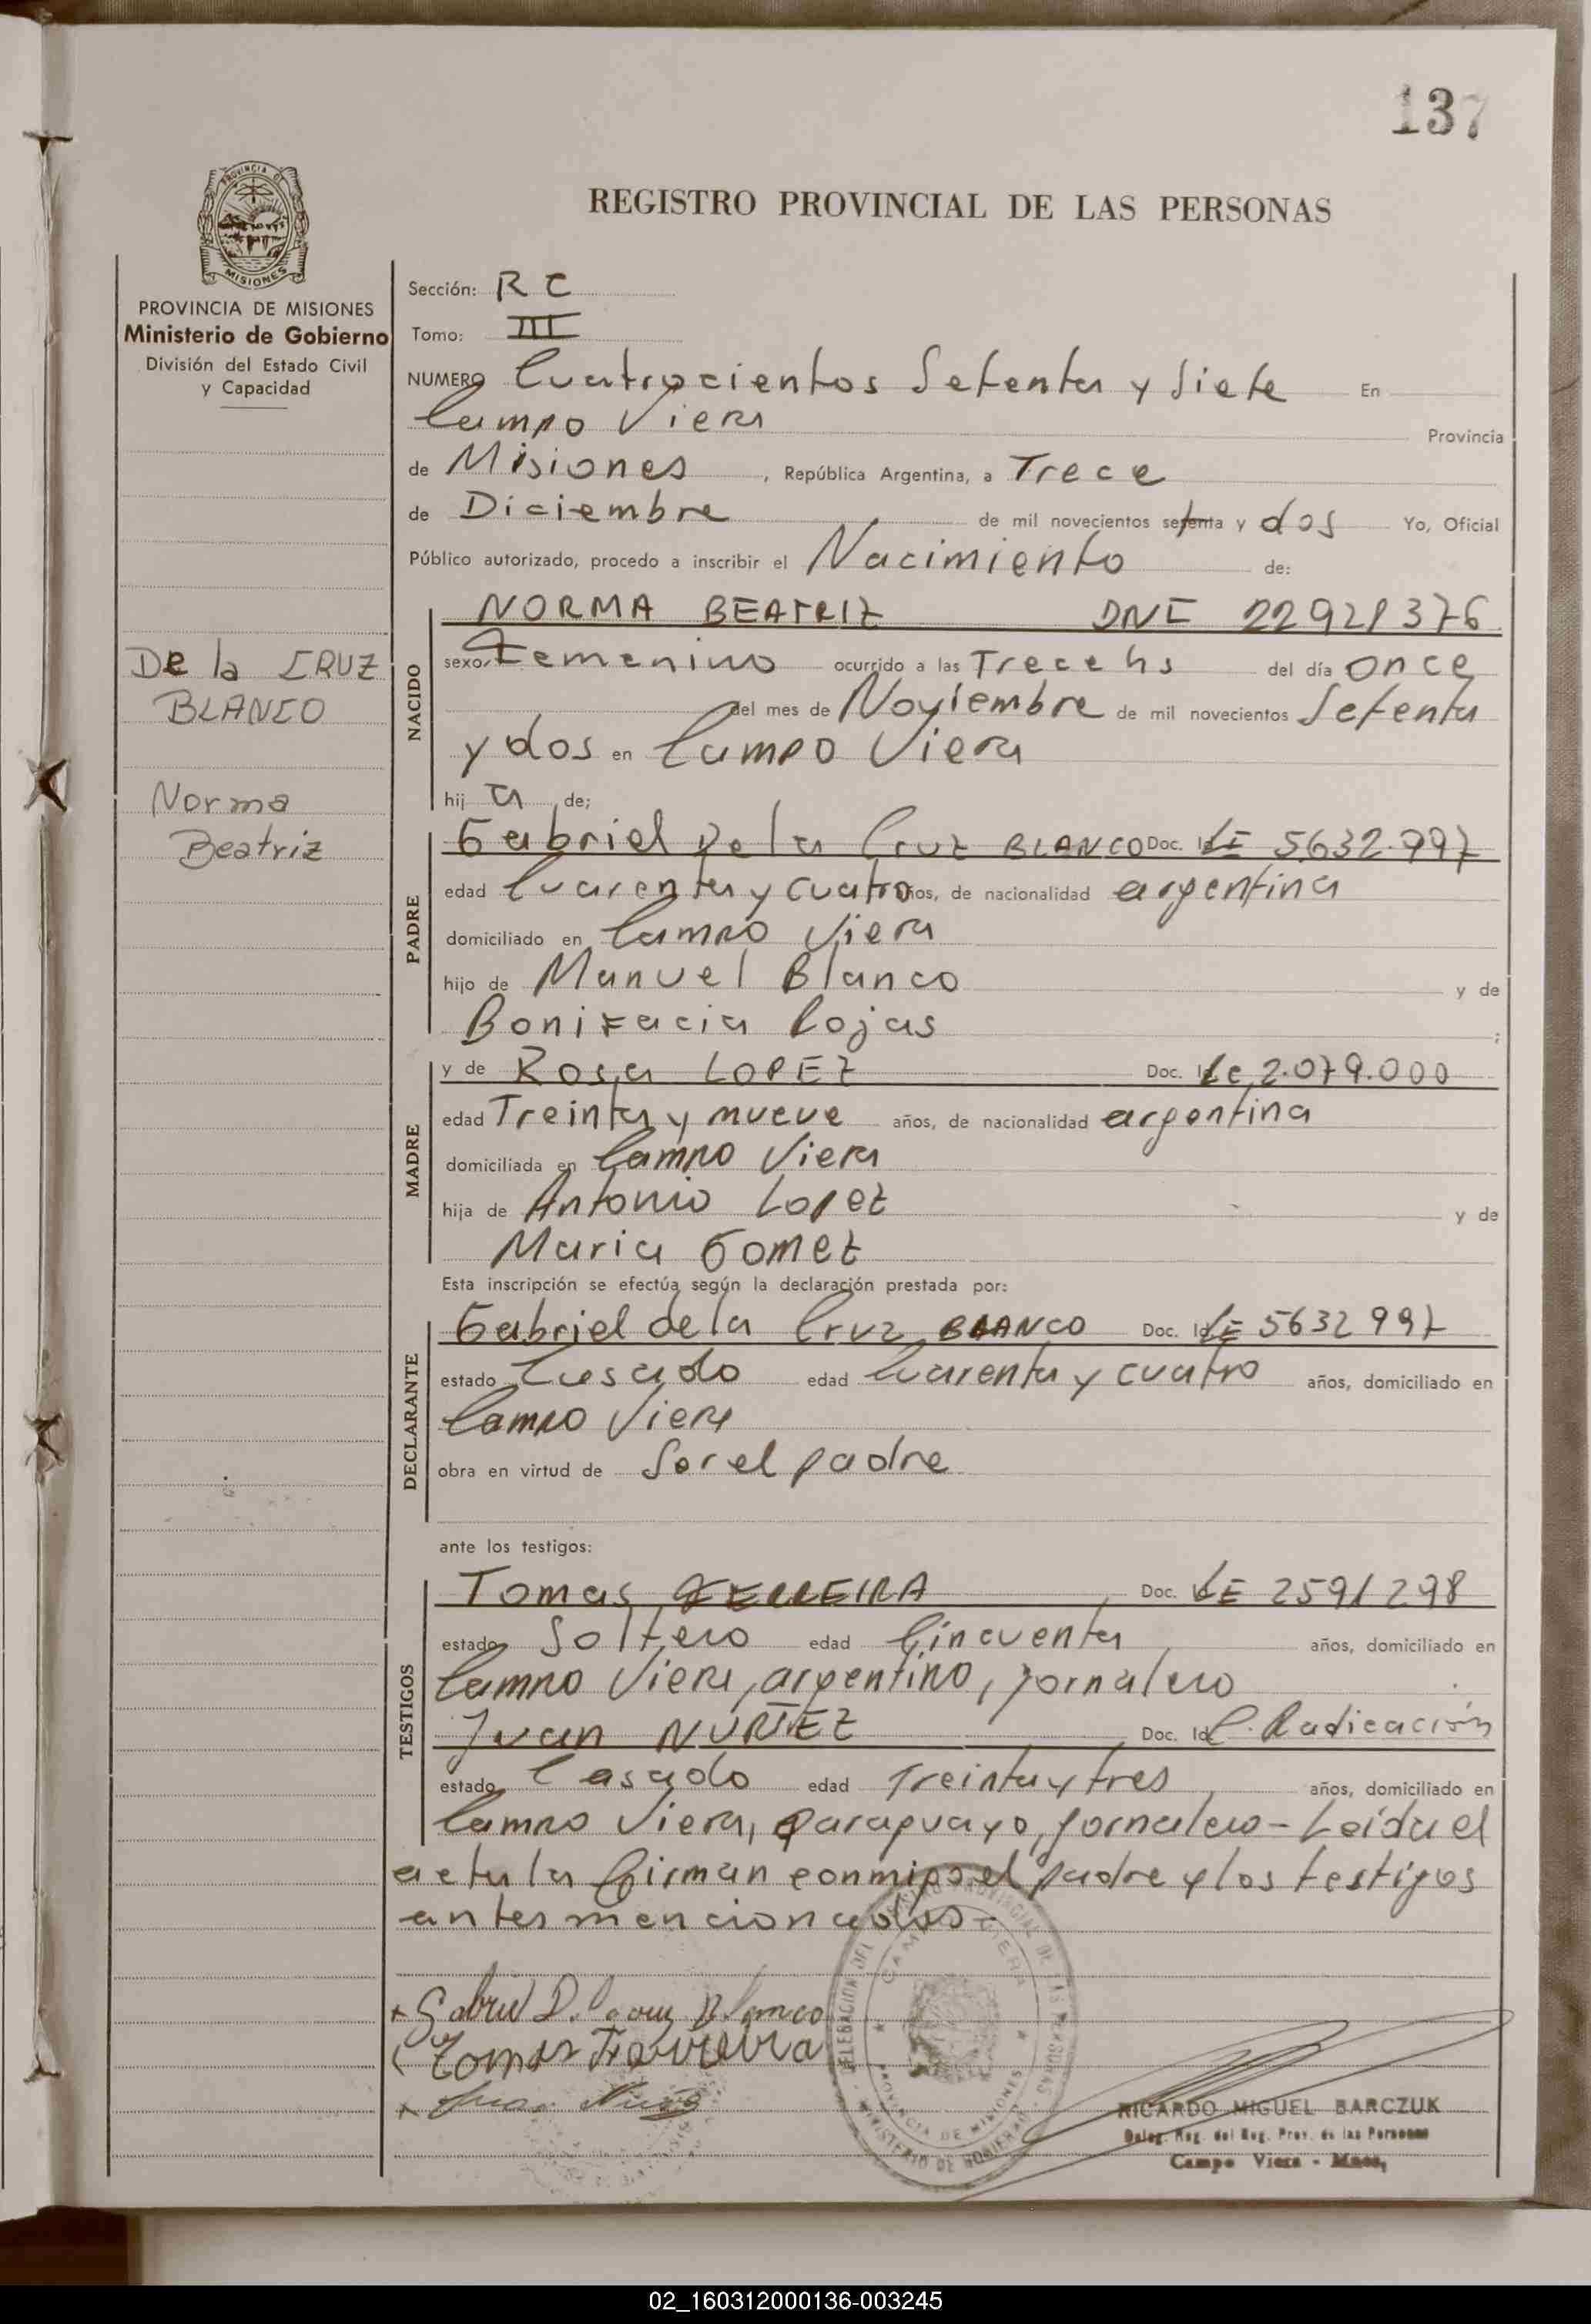 137
REGISTRO PROVINCIAL DE LAS PERSONAS
PROVINCIA DE MISIONES
PROVINCIA DE MISIONES
Ministerio de Gobierno
División del Estado Civil
y Capacidad
De la CRUZ
BLANCO
Norma
Beatriz
Sección: R C
Tomo: III
NUMERO Cuatrocientos Setenta y Siete En
Campo Viera Provincia
de Misiones, República Argentina, a Trece
de Diciembre de mil novecientos setenta y dos Yo, Oficial
Público autorizado, procedo a inscribir el Nacimiento de:
NACIDO
NORMA BEATRIZ DNI 22921376
sexo Femenino ocurrido a las Trece hs del día once
del mes de Noviembre de mil novecientos Setenta
y dos en Campo Viera
hij a de;
PADRE
Gabriel De la Cruz BLANCO Doc. Id LE 5632.997
edad Cuarenta y cuatro años, de nacionalidad argentina
domiciliado en Campo Viera
hijo de Manuel Blanco y de
Bonifacia Rojas ;
MADRE
y de Rosa LOPEZ Doc. Id Lc 2.079.000
edad Treinta y nueve años, de nacionalidad argentina
domiciliada en Campo Viera
hija de Antonio Lopez y de
Maria Gomez
Esta inscripción se efectúa según la declaración prestada por:
DECLARANTE
Gabriel de la Cruz BLANCO Doc. Id LE 5632997
estado Casado edad Cuarenta y cuatro años, domiciliado en
Campo Viera
obra en virtud de Ser el padre
ante los testigos:
TESTIGOS
Tomas FERREIRA Doc. LE 2591298
estado Soltero edad Cincuenta años, domiciliado en
Campo Viera, argentino, jornalero
Juan NUÑEZ Doc. Id C. Radicación
estado Casado edad Treinta y tres años, domiciliado en
Campo Viera, paraguayo, jornalero - Leida el
acta la firman conmigo el padre y los testigos
antes mencionados-
Gabriel D. la Cruz Blanco
Tomas Ferreira
Juan Nuñez
DELEGACION DEL REGISTRO PROVINCIAL DE LAS PERSONAS
CAMPO VIERA
PROVINCIA DE MISIONES
MINISTERIO DE GOBIERNO
RICARDO MIGUEL BARCZUK
Deleg. Reg. del Reg. Prov. de las Personas
Campo Viera - Mnes,
02_160312000136-003245